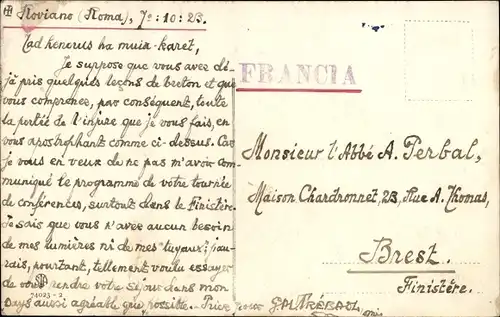 ✠ Roviano (Roma), 7=:10:23.
Tad kenavus ha muia-karet,
Je suppose que vous avez dé-
jà pris quelques leçons de breton et que
vous comprenez, par conséquent, toute
la portée de l'injure que je vous fais, en
vous apostrophant comme ci-dessus. Car
je vous en veux de ne pas m'avoir com-
muniqué le programme de votre tournée
de conférences, surtout dans le Finistère.
Je sais que vous n'avez aucun besoin
de mes lumières ni de mes "tuyaux"; j'au-
rais, pourtant, tellement voulu essayer
de vous rendre votre séjour dans mon
pays aussi agréable que possible. Priez pour
G.M. TRÉBAOL
74023-2
FRANCIA
Monsieur l'Abbé A. Perbal,
Maison Chardronnet 23, Rue A. Thomas,
Brest.
Finistère.